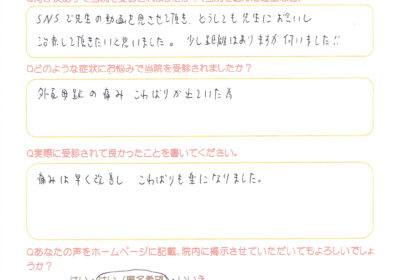 SNSで先生の動画を見させて頂き、どうしても先生にお願いし
治療して頂きたいと思いました。少し距離はありますが伺いました!!
Qどのような症状にお悩みで当院を受診されましたか?
外反母趾の痛み こわばりが出ていた為
Q実際に受診されて良かったことを書いてください。
痛みは早く改善し こわばりも楽になりました。
Qあなたの声をホームページに記載、院内に掲示させていただいてもよろしいでしょ
うか?
はい・はい(匿名希望)・いいえ